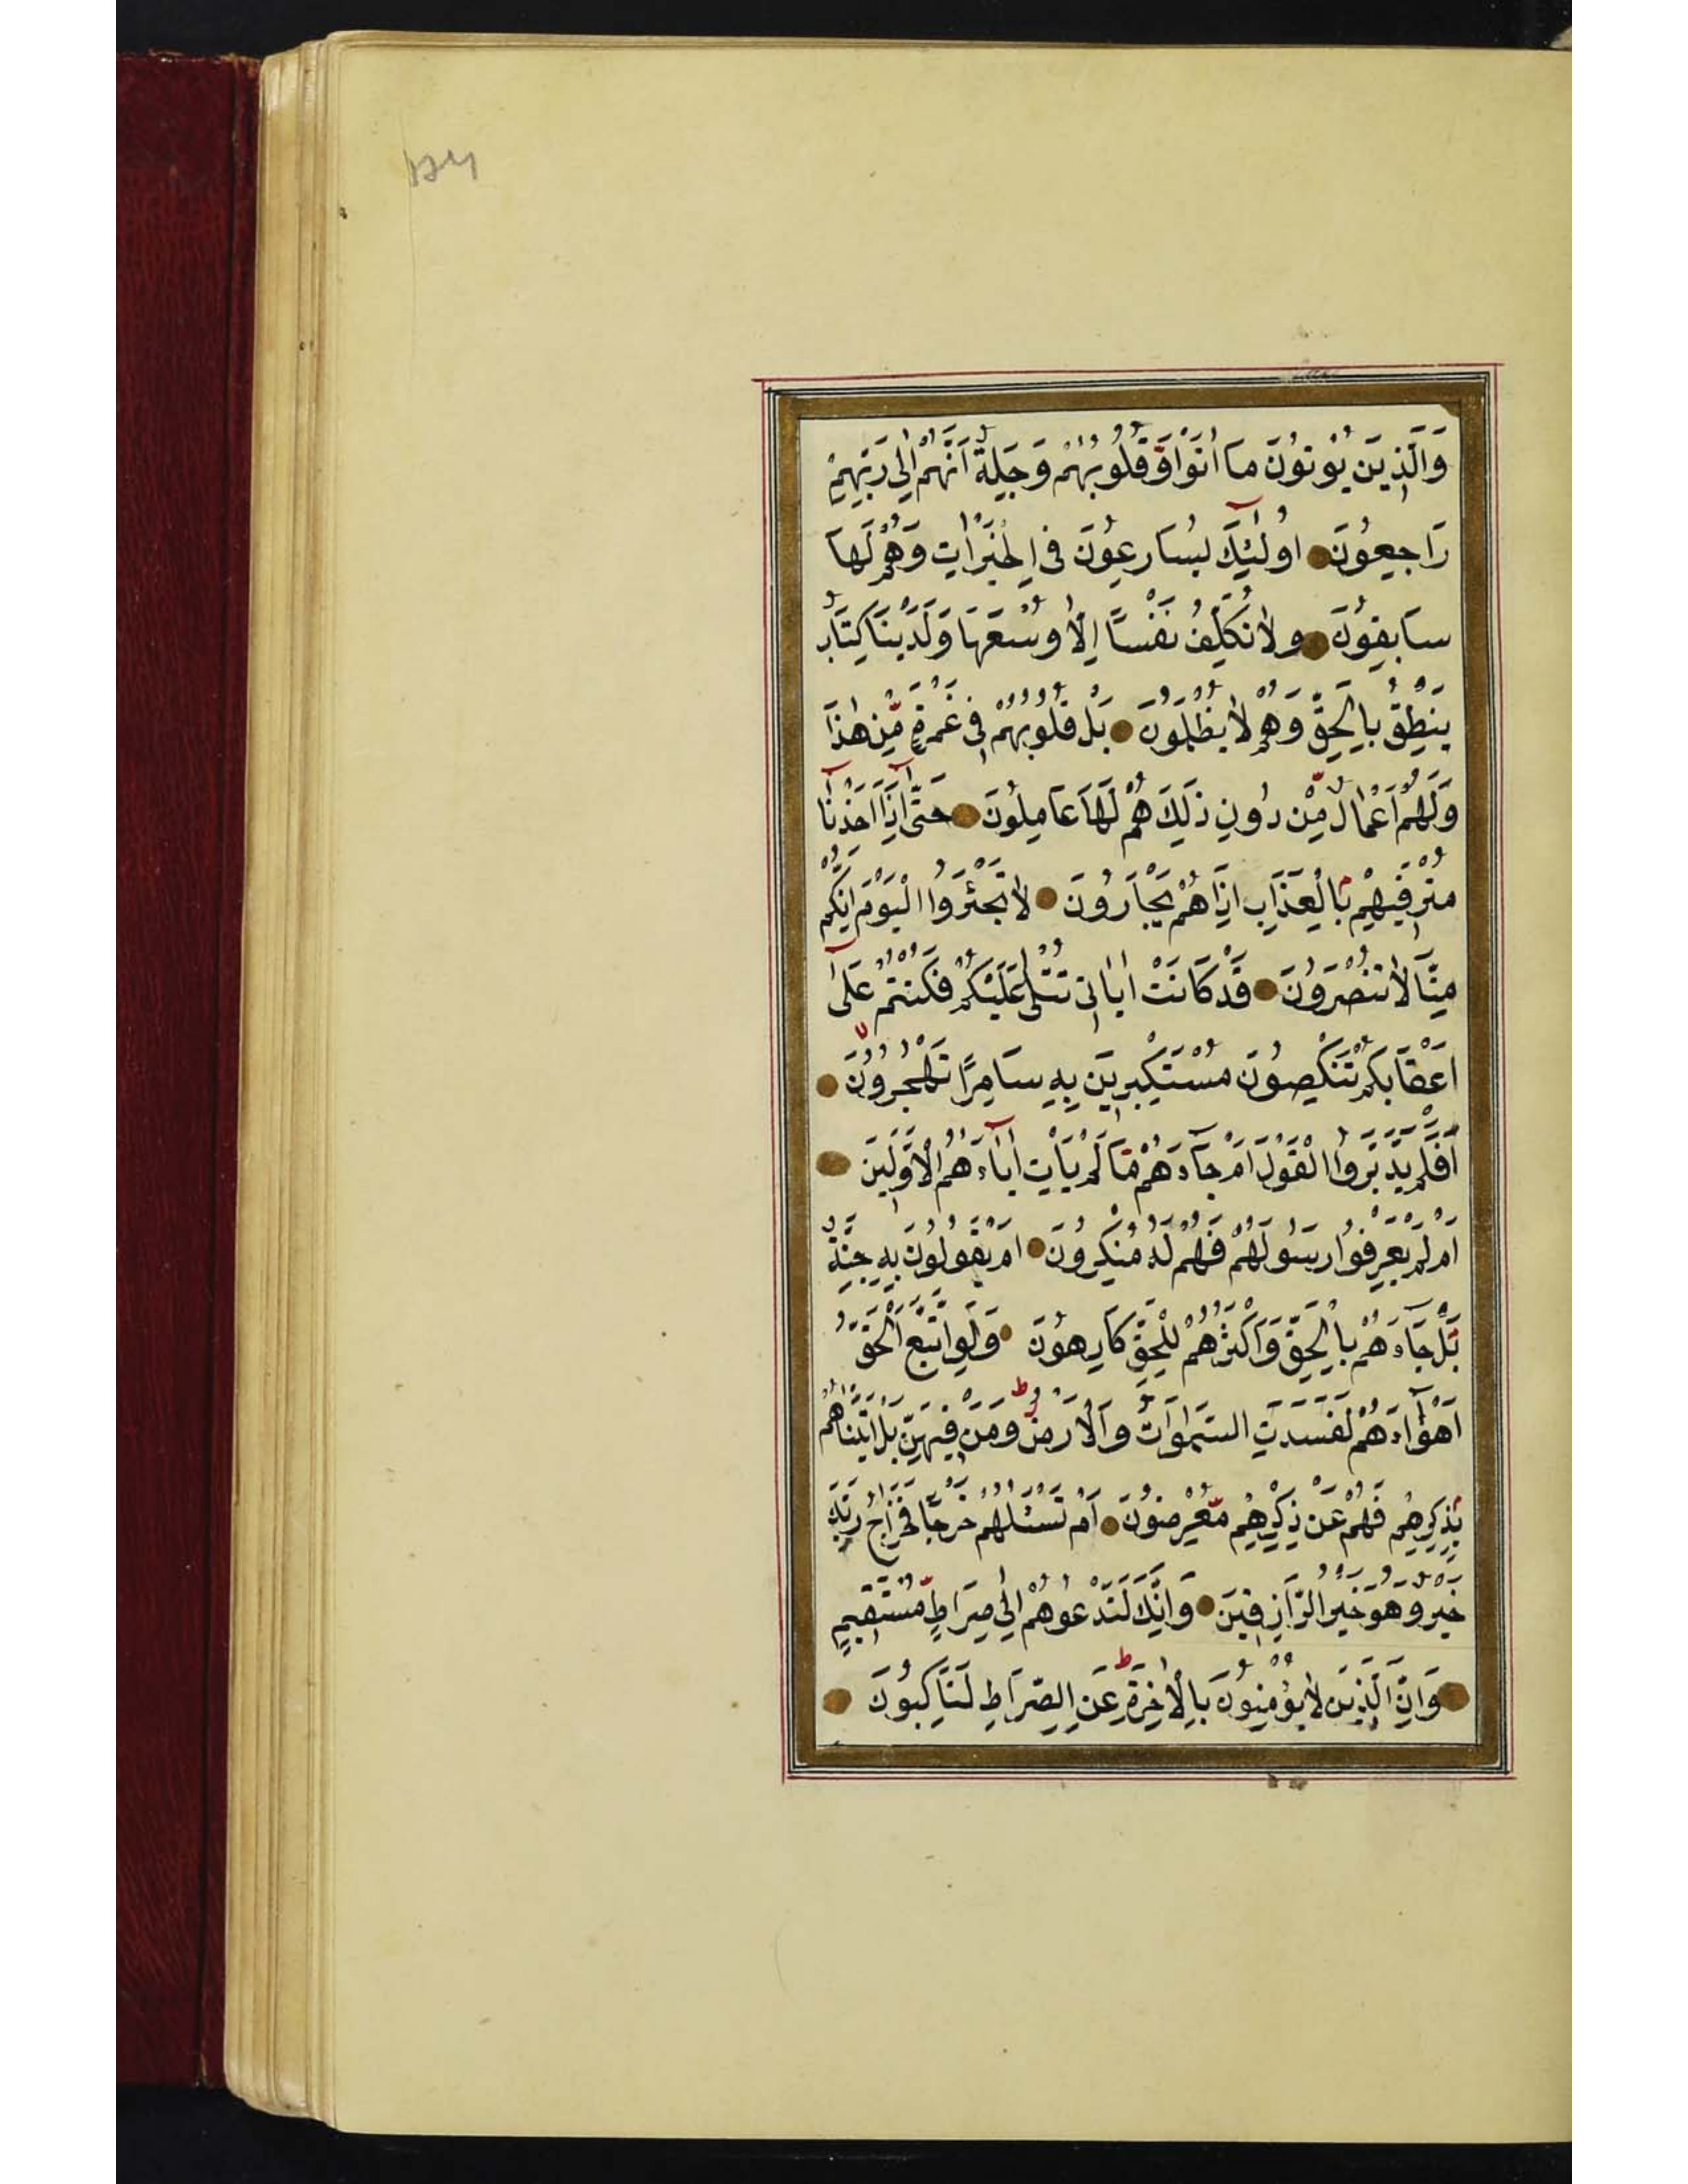 وَالَّذِينَ يُؤْتُونَ مَا اٰتَوْا وَّقُلُوبُهُمْ وَجِلَةٌ اَنَّهُمْ اِلٰى رَبِّهِمْ
رَاجِعُونَ اُولٰٓئِكَ يُسَارِعُونَ فِى الْخَيْرَاتِ وَهُمْ لَهَا
سَابِقُونَ وَلَا نُكَلِّفُ نَفْسًا اِلَّا وُسْعَهَا وَلَدَيْنَا كِتَابٌ
يَنْطِقُ بِالْحَقِّ وَهُمْ لَا يُظْلَمُونَ بَلْ قُلُوبُهُمْ فِى غَمْرَةٍ مِّنْ هٰذَا
وَلَهُمْ اَعْمَالٌ مِّنْ دُونِ ذٰلِكَ هُمْ لَهَا عَامِلُونَ حَتّٰىٓ اِذَآ اَخَذْنَا
مُتْرَفِيهِمْ بِالْعَذَابِ اِذَا هُمْ يَجْاَرُونَ لَا تَجْئَرُوا الْيَوْمَ اِنَّكُمْ
مِنَّا لَا تُنْصَرُونَ قَدْ كَانَتْ اٰيَاتِى تُتْلٰى عَلَيْكُمْ فَكُنْتُمْ عَلٰىٓ
اَعْقَابِكُمْ تَنْكِصُونَ مُسْتَكْبِرِينَ بِهِ سَامِرًا تَهْجُرُونَ
اَفَلَمْ يَدَّبَّرُوا الْقَوْلَ اَمْ جَآءَهُمْ مَّا لَمْ يَأْتِ اٰبَآءَهُمُ الْاَوَّلِينَ
اَمْ لَمْ يَعْرِفُوا رَسُولَهُمْ فَهُمْ لَهُ مُنْكِرُونَ اَمْ يَقُولُونَ بِهِ جِنَّةٌ
بَلْ جَآءَهُمْ بِالْحَقِّ وَاَكْثَرُهُمْ لِلْحَقِّ كَارِهُونَ وَلَوِ اتَّبَعَ الْحَقُّ
اَهْوَآءَهُمْ لَفَسَدَتِ السَّمٰوَاتُ وَالْاَرْضُ وَمَنْ فِيهِنَّ ط بَلْ اَتَيْنَاهُمْ
بِذِكْرِهِمْ فَهُمْ عَنْ ذِكْرِهِمْ مُّعْرِضُونَ اَمْ تَسْئَلُهُمْ خَرْجًا فَخَرَاجُ رَبِّكَ
خَيْرٌ وَّهُوَ خَيْرُ الرَّازِقِينَ وَاِنَّكَ لَتَدْعُوهُمْ اِلٰى صِرَاطٍ مُّسْتَقِيمٍ
وَاِنَّ الَّذِينَ لَا يُؤْمِنُونَ بِالْاٰخِرَةِ ط عَنِ الصِّرَاطِ لَنَاكِبُونَ